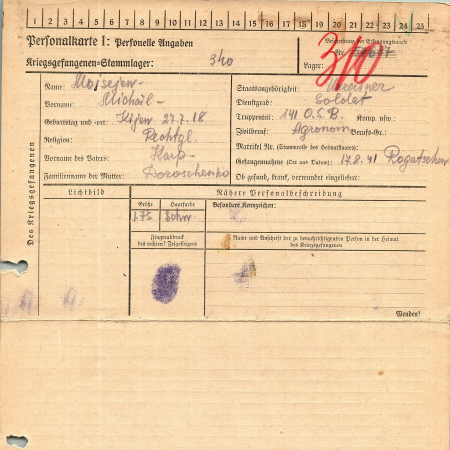 1 2 3 4 5 6 7 8 9 10 11 12 13 14 15 16 17 18 19 20 21 22 23 24 25
Personalkarte I: Personelle Angaben
Kriegsgefangenen-Stammlager: 340
Beschriftung der Erkennungsmarke
Nr.
Lager: 340
Des Kriegsgefangenen
Name: Mojsejen-
Vorname: Michail-
Geburtstag und -ort: Kijew 27.7.18
Religion:
Vorname des Vaters: Karp-
Familienname der Mutter: Doroschenko
Staatsangehörigkeit:
Dienstgrad: Soldat
Truppenteil: 141 O.S.B. Komp. usw.:
Zivilberuf: Agronom Berufs-Gr.:
Matrikel Nr. (Stammrolle des Heimatstaates):
Gefangennahme (Ort und Datum): 17.8.41 Rogatschew
Ob gesund, krank, verwundet eingeliefert:
Lichtbild
Nähere Personalbeschreibung
Größe Haarfarbe Besondere Kennzeichen:
1.73 Schw.
Fingerabdruck
des rechten! Zeigefingers
Name und Anschrift der zu benachrichtigenden Person in der Heimat
des Kriegsgefangenen
Wenden!